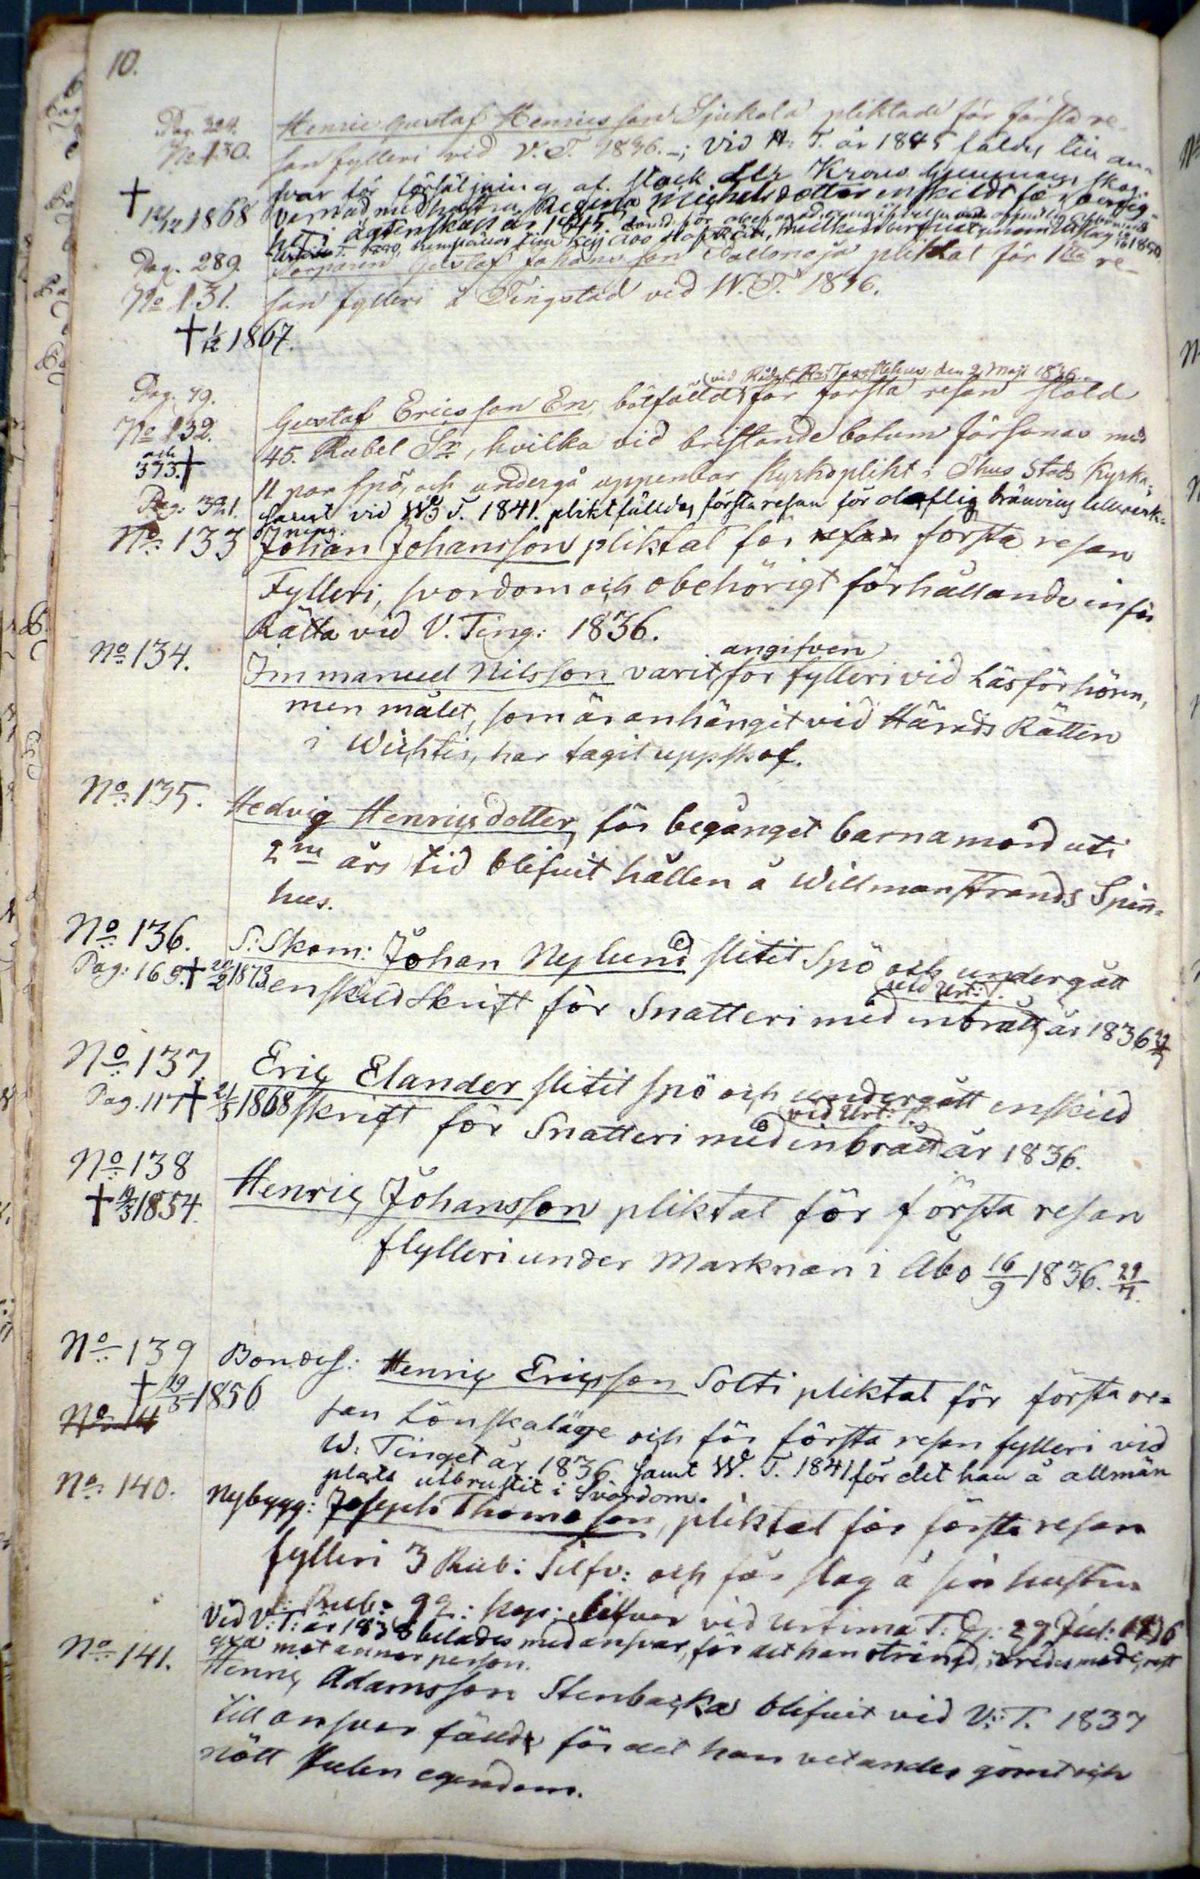 10.
Pag. 324. Henric Gustaf Henricsson Sjukola pliktade för första re-
No 130. san fylleri vid V. T. 1836.-; vid H: T. år 1845 fäldes till an-
svar för försäljning af stock ur Krono skog.
† 12/12 1868 Regina Michelsdotter enskildt
het i ägtenskap år 1845
Pag. 289. Torparen Gustaf Johansson pliktat för 1sta re-
No 131. san fylleri å Tingstad vid W. T. 1836.
† 1/12 1867.
Pag. 79. (vid Rådst. Rätten den 9 Maji 1836.
No 132. Gustaf Ericsson En, bötfälld för första resan stöld
och 373.† 45. Rubel Sr, hvilka vid bristande botum försonas med
11 par spö, och undergå uppenbar Kyrkoplikt i Thus Stads Kyrka;
Pag: 321. samt vid W. T. 1841. pliktfälldes första resan för olaflig bränvins tillverk-
ning.
No 133 Johan Johansson pliktat för första resan
Fylleri, svordom och obehörigt förhållande inför
Rätta vid V. Ting: 1836.
angifven
No 134. Immanuel Nilsson varit för fylleri vid Läsförhören,
men målet, som är anhängit vid Härads Rätten
i Wichtis, har tagit uppskof.
No 135. Hedvig Henricsdotter, för begånget barnamord uti
2ne års tid blifvit hållen å Willmanstrands Spinn-
hus.
No 136. S: Skom: Johan Nylund slitit Spö och undergått
Pag: 169. † 1873. enskild Skrift för Snatteri med inbrått (vid Urt: T.) år 1836
No 137. Eric Elander slitit spö och undergått enskild
Pag. 117 † 21/3 1868 skrift för Snatteri med inbrått (vid Urt: T.) år 1836.
No 138 Henric Johansson pliktat för första resan
† 19/3 1854. fylleri under Marknan i Åbo 16/9 1836.
No 139 Bondes: Henric Ericsson Solti pliktat för första re-
† 19/5 1856 san Lönskaläge och för första resan fylleri vid
No 14 W: Tinget år 1836. samt W. T. 1841 för det han å allmän
plats utbrustit i Svordom.
No 140. Nybygg: Joseph Thomasson, pliktat för första resan
fylleri 3 Rub: Silfv: och för slag å sin hustru
Rub: 92: kop: Silfver vid Urtima T. D: 29 Jul: 1836
Vid V: T: år 1838 belades med ansvar, för det han
mot annor person.
No 141. Henric Adamsson Stenbacka blifvit vid V: T. 1837
till ansvar fälld, för det han vetandes gömt och
nött stulen egendom.